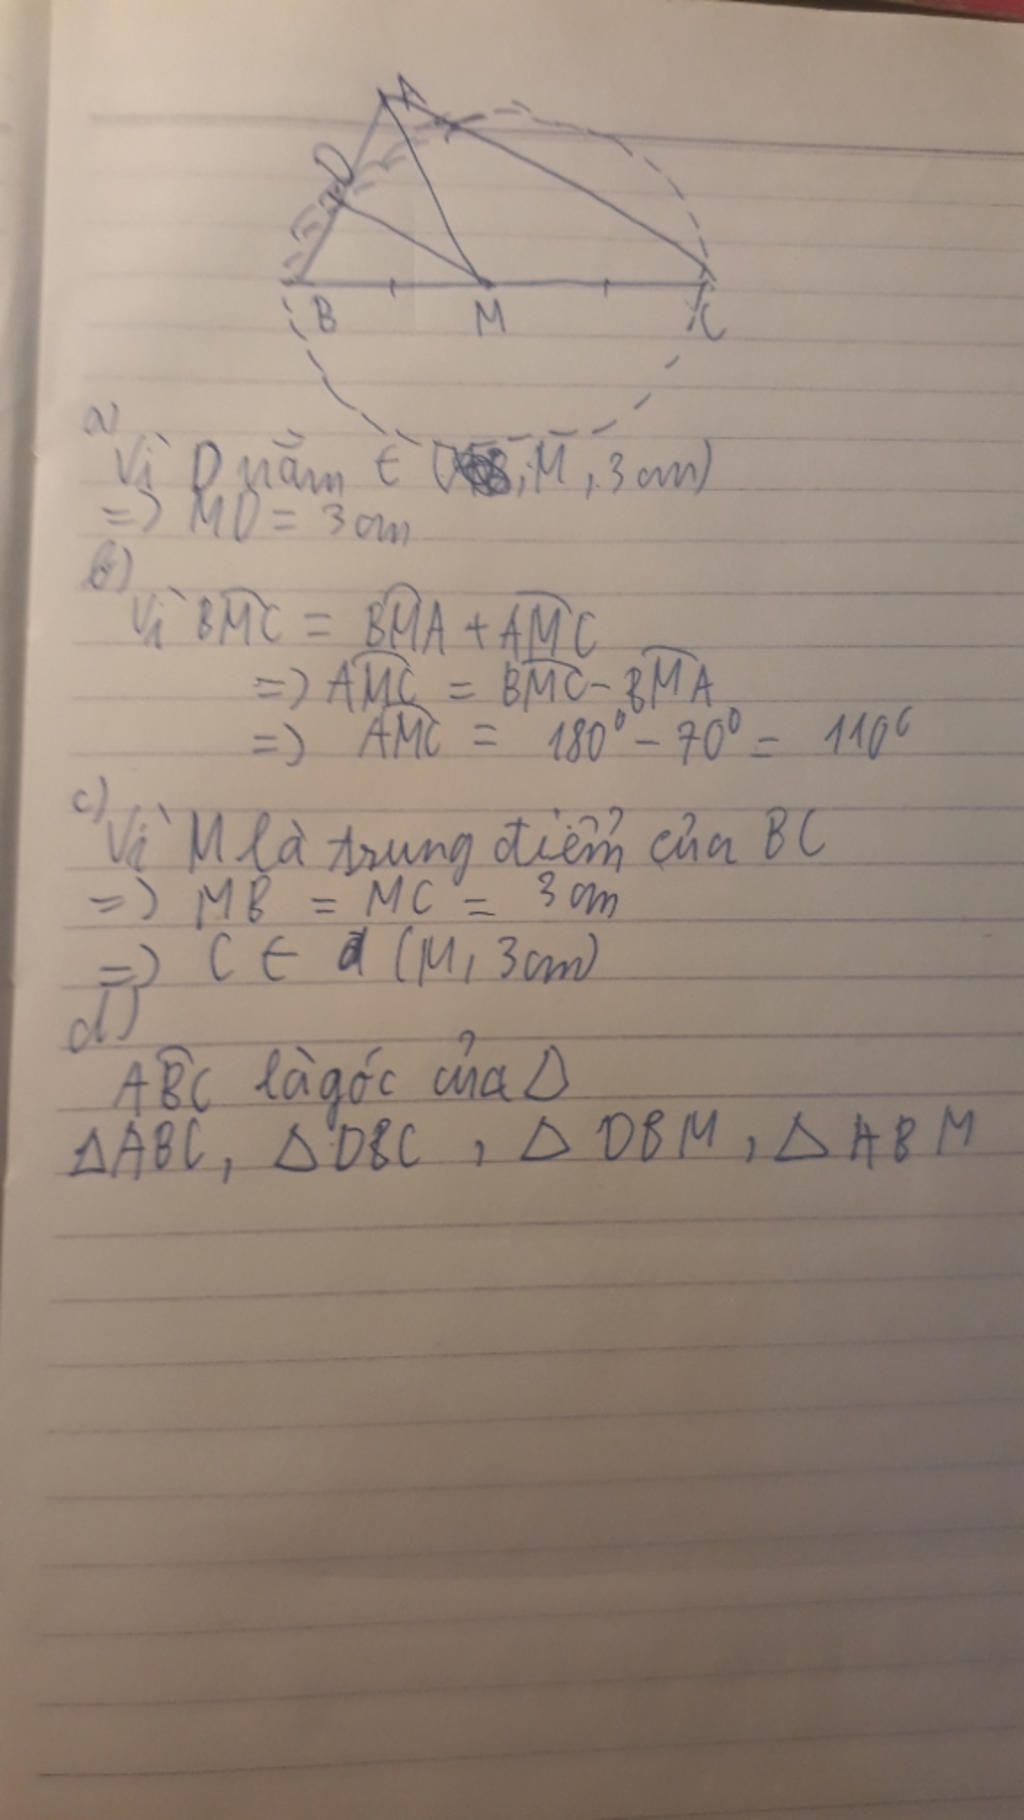 A
D
B
M
C
a)
Vì D nằm ∈ (M, 3 cm)
=) MD = 3 cm
b)
Vì BMC = BMA + AMC
=) AMC = BMC - BMA
=) AMC = 180⁰ - 70⁰ = 110⁰
c)
Vì M là trung điểm của BC
=) MB = MC = 3 cm
=) C ∈ (M, 3 cm)
d)
ABC là góc của Δ
ΔABC, ΔDBC, ΔDBM, ΔABM